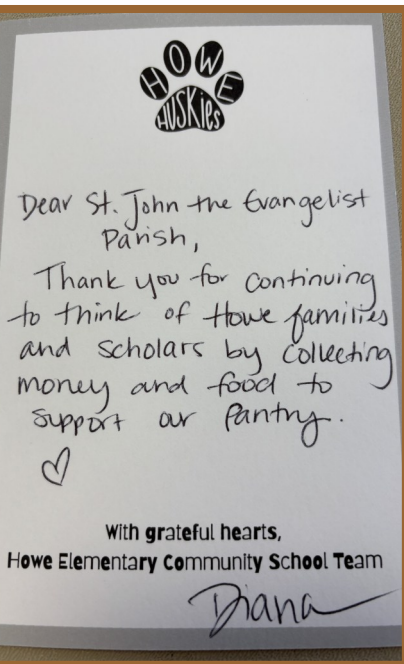 HOWE
HUSKIES
Dear St. John the Evangelist
Parish,
Thank you for continuing
to think of Howe families
and scholars by collecting
money and food to
support our Pantry.
With grateful hearts,
Howe Elementary Community School Team
Diana